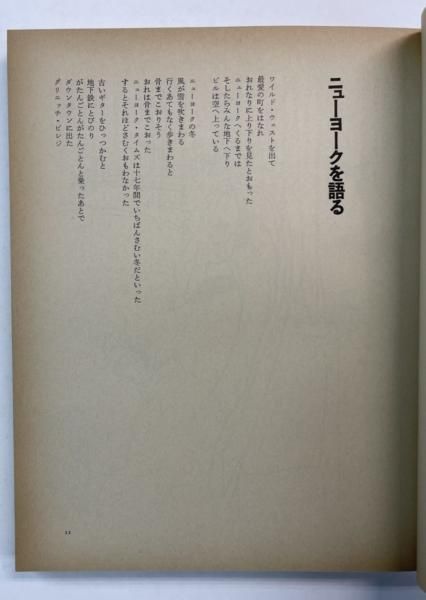 ニューヨークを語る
ワイルド・ウェストを出て
最愛の町をはなれ
おれなりに上り下りを見たとおもった
ニューヨークへくるまでは
そしたらみんな地下へ下り
ビルは空へ上っている
ニューヨークの冬
風が雪を吹きまわる
行くあてもなく歩きまわると
骨までこおりそう
おれは骨までこおった
ニューヨーク・タイムズは十七年間でいちばんさむい冬だといった
するとそれほどさむくおもわなかった
古いギターをひっつかむと
地下鉄にとびのり
がたんごとんがたんごとんと乗ったあとで
ダウンタウンに出た
グリニッチ・ビレジ